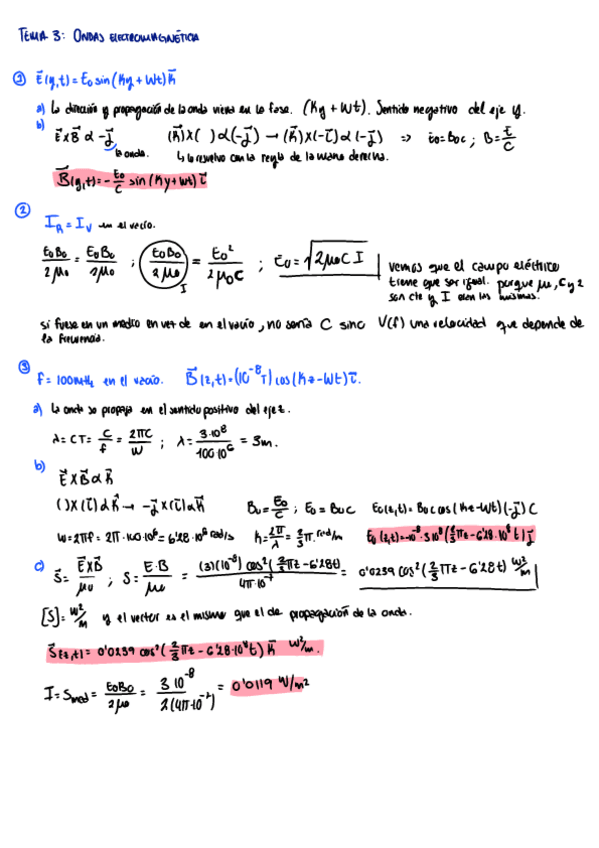 TEMA 3: ONDAS ELECTROMAGNÉTICA
① E⃗(y,t) = E₀ sin(Ky + Wt) K⃗
a) La dirección y propagación de la onda viene en la fase. (Ky + Wt). Sentido negativo del eje y.
b) E⃗ X B⃗ α -J⃗ (K⃗) X ( ) α (-J⃗) → (K⃗) X (-i⃗) α (-J⃗) => E₀ = B₀C ; B = E/C
la onda. lo resuelvo con la regla de la mano derecha.
B⃗(y,t) = - E₀/C sin(Ky + Wt) i⃗
② I_R = I_V en el vacío.
E₀B₀/2μ₀ = E₀B₀/2μ₀ ; E₀B₀/2μ₀ = E₀²/2μ₀C ; E₀ = √2μ₀C I
I
vemos que el campo eléctrico
tiene que ser igual. porque μ, C y 2
son cte y I eran las mismas.
si fuese en un medio en vez de en el vacío, no sería C sino V(f) una velocidad que depende de
la frecuencia.
③ f = 100MHz en el vacío. B⃗(z,t) = (10⁻⁸ T) cos(Kz - Wt) i⃗.
a) la onda se propaga en el sentido positivo del eje z.
λ = CT = C/f = 2πC/W ; λ = 3·10⁸/100·10⁶ = 3m.
b) E⃗ X B⃗ α K⃗
( ) X (i⃗) α K⃗ → -J⃗ X (i⃗) α K⃗ B₀ = E₀/C ; E₀ = B₀C E₀(z,t) = B₀C cos(Kz - Wt)(-J⃗) C
W = 2πf = 2π·100·10⁶ = 6'28·10⁸ rad/s K = 2π/λ = 2/3 π rad/m E₀(z,t) = -10⁻⁸·3·10⁸ (2/3 πz - 6'28·10⁸ t) J⃗
c) S⃗ = E⃗ X B⃗/μ₀ ; S = E·B/μ₀ = (3)(10⁻⁸) cos²(2/3 πz - 6'28t)/4π·10⁻⁷ = 0'0239 cos²(2/3 πz - 6'28·10⁸ t) W²/m
[S] = W²/m y el vector es el mismo que el de propagación de la onda.
S⃗(z,t) = 0'0239 cos²(2/3 πz - 6'28·10⁸ t) K⃗ W²/m.
I = Smed = E₀B₀/2μ₀ = 3·10⁻⁸/2(4π·10⁻⁷) = 0'0119 W/m²